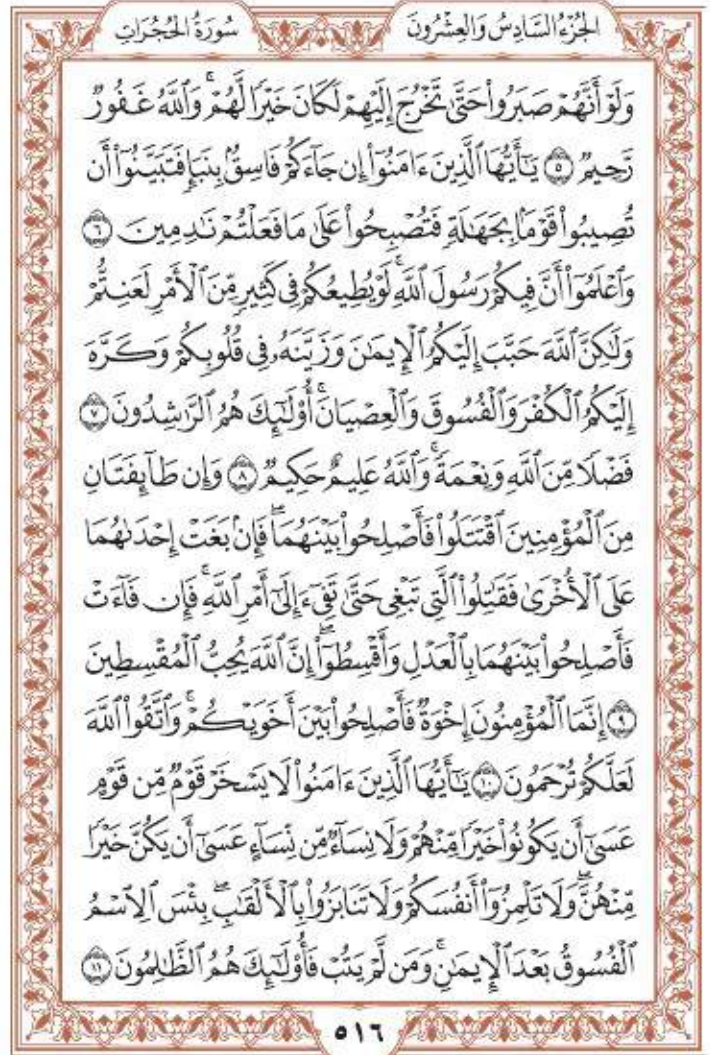 الجُزْءُ السَّادِسُ وَالعِشْرُونَ
سُورَةُ الحُجُرَاتِ
وَلَوْ أَنَّهُمْ صَبَرُواْ حَتَّىٰ تَخْرُجَ إِلَيْهِمْ لَكَانَ خَيْرًا لَّهُمْۚ وَٱللَّهُ غَفُورٌ
رَّحِيمٌ ٥ يَٰٓأَيُّهَا ٱلَّذِينَ ءَامَنُوٓاْ إِن جَآءَكُمْ فَاسِقُۢ بِنَبَإٖ فَتَبَيَّنُوٓاْ أَن
تُصِيبُواْ قَوْمَۢا بِجَهَٰلَةٖ فَتُصْبِحُواْ عَلَىٰ مَا فَعَلْتُمْ نَٰدِمِينَ ٦
وَٱعْلَمُوٓاْ أَنَّ فِيكُمْ رَسُولَ ٱللَّهِۚ لَوْ يُطِيعُكُمْ فِي كَثِيرٖ مِّنَ ٱلْأَمْرِ لَعَنِتُّمْ
وَلَٰكِنَّ ٱللَّهَ حَبَّبَ إِلَيْكُمُ ٱلْإِيمَٰنَ وَزَيَّنَهُۥ فِي قُلُوبِكُمْ وَكَرَّهَ
إِلَيْكُمُ ٱلْكُفْرَ وَٱلْفُسُوقَ وَٱلْعِصْيَانَۚ أُوْلَٰٓئِكَ هُمُ ٱلرَّٰشِدُونَ ٧
فَضْلًا مِّنَ ٱللَّهِ وَنِعْمَةًۚ وَٱللَّهُ عَلِيمٌ حَكِيمٌ ٨ وَإِن طَآئِفَتَانِ
مِنَ ٱلْمُؤْمِنِينَ ٱقْتَتَلُواْ فَأَصْلِحُواْ بَيْنَهُمَاۖ فَإِنۢ بَغَتْ إِحْدَىٰهُمَا
عَلَى ٱلْأُخْرَىٰ فَقَٰتِلُواْ ٱلَّتِي تَبْغِي حَتَّىٰ تَفِيٓءَ إِلَىٰٓ أَمْرِ ٱللَّهِۚ فَإِن فَآءَتْ
فَأَصْلِحُواْ بَيْنَهُمَا بِٱلْعَدْلِ وَأَقْسِطُوٓاْۖ إِنَّ ٱللَّهَ يُحِبُّ ٱلْمُقْسِطِينَ
٩ إِنَّمَا ٱلْمُؤْمِنُونَ إِخْوَةٌ فَأَصْلِحُواْ بَيْنَ أَخَوَيْكُمْۚ وَٱتَّقُواْ ٱللَّهَ
لَعَلَّكُمْ تُرْحَمُونَ ١٠ يَٰٓأَيُّهَا ٱلَّذِينَ ءَامَنُواْ لَا يَسْخَرْ قَوْمٌ مِّن قَوْمٍ
عَسَىٰٓ أَن يَكُونُواْ خَيْرًا مِّنْهُمْ وَلَا نِسَآءٌ مِّن نِّسَآءٍ عَسَىٰٓ أَن يَكُنَّ خَيْرًا
مِّنْهُنَّۖ وَلَا تَلْمِزُوٓاْ أَنفُسَكُمْ وَلَا تَنَابَزُواْ بِٱلْأَلْقَٰبِۖ بِئْسَ ٱلِٱسْمُ
ٱلْفُسُوقُ بَعْدَ ٱلْإِيمَٰنِۚ وَمَن لَّمْ يَتُبْ فَأُوْلَٰٓئِكَ هُمُ ٱلظَّٰلِمُونَ ١١
٥١٦